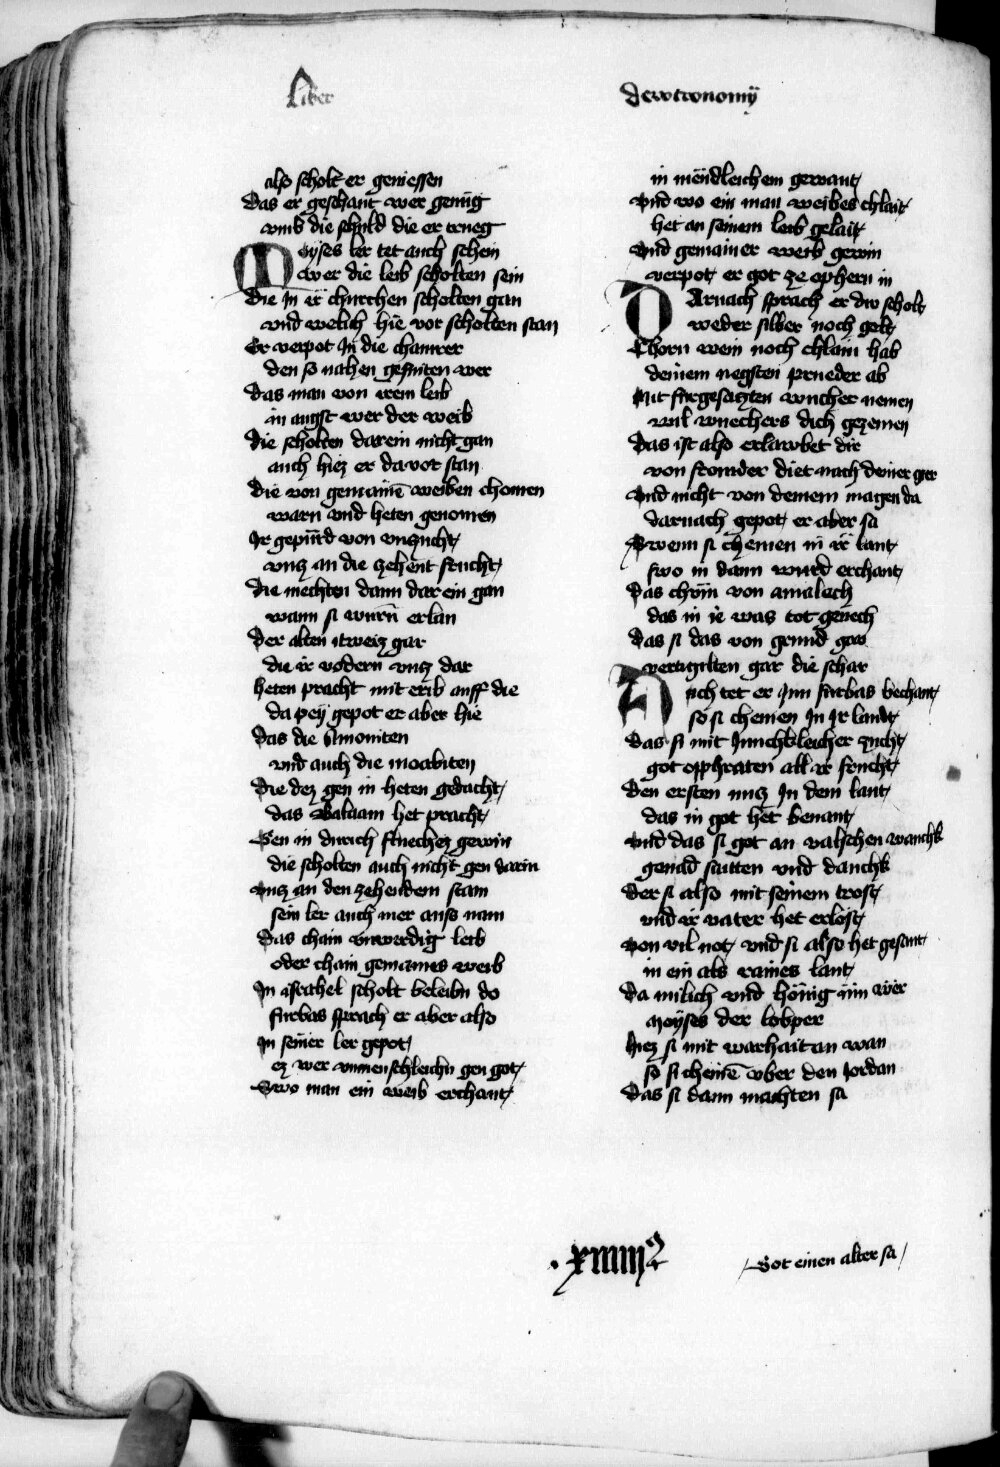 Liber
dewtronomÿ
also scholt er geniessen
Das er geschant wer genug
vmb die schuld die er trueg
Moyses ler tet auch schein
wer die leib scholten sein
Die In ir chirchen scholten gan
vnd welich hie vor scholten stan
Er verpot In die chamrer
den so nahen gesniten wer
Das man von irem leib
in angst wer der weib
Die scholten darein nicht gan
auch hiez er da vor stan
Die von gemainē weiben chomen
warn vnd heten genomen
Ir gepürd von vnzucht
vncz an die zehent frucht
Die mechten dann dar ein gan
wann si wurn erlan
Der alten itweiz gar
die ir vodern vncz dar
heten pracht mit erib auff die
da peÿ gepot er aber hie
Das die Amoniten
vnd auch die moabiten
Die dez gen in heten gedacht
das Balaam het pracht
Den in durich fluechez gewin
die scholten auch nicht gen darin
vncz an den zehendem stam
sein ler auch mer auss nam
Das chain vnwerdig leib
oder chain gemaines weib
In israhel scholt beleibn do
furbas sprach er aber also
In seiner ler gepot
ez wer vnmenschleichn gen got
Swo man ein weib erchant
in mendleichem gewant
vnd wo ein man weibes chlait
het an seinem leib gelait
vnd gemainer weib gewin
verpot er got ze ophern in
Darnach sprach er dw scholt
weder silber noch golt
Chorn wein noch chlain hab
deinem negsten prueder ab
Mit furgesaczten wucher nemen
wil wuechers dich gezemen
Das ist also erlawbet dir
von fromder diet nach deiner gir
vnd nicht von deinem magen da
darnach gepot er aber sa
Swenn si chemen in ir lant
swo in dann wurd erchant
Das chünn von amalech
das in ie was tot gevech
Das si das von grund gar
vertigilten gar die schar
Auch tet er Inn furbas bechant
so si chemen In Ir landt
Das si mit Innchleicher zucht
got opphraten all ir frucht
Den ersten nucz In dem lant
das in got het benant
vnd das si got an valschen wanchk
genad saitten vnd danchk
Der si also mit seinem trost
vnd ir vater het erlost
von vil not vnd si also het gesant
in ein als raines lant
Da milich vnd hönig inn wer
Moÿses der lobper
hiez si mit warhait an wan
so si chemē vber den Jordan
Das si dann machten sa
Got einen alter sa